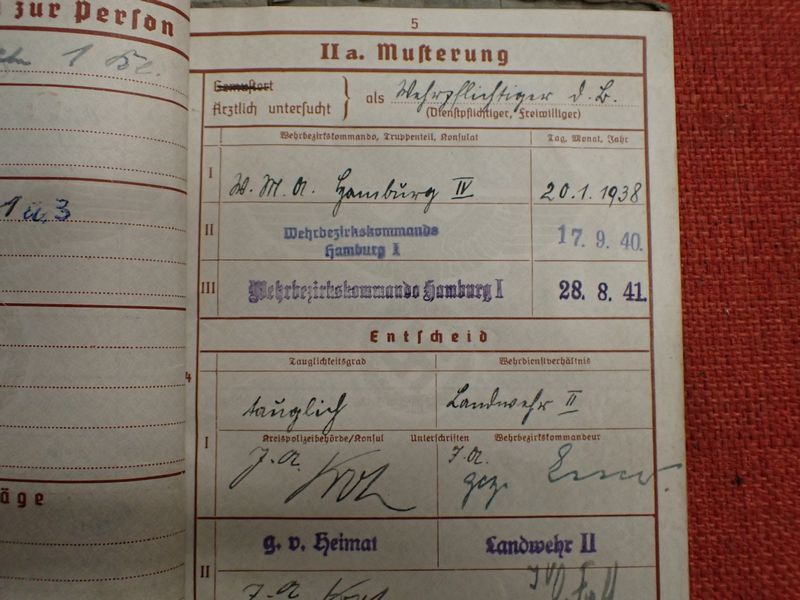 zur Person
1 Kl.
1 u. 3
äge
4
5
II a. Musterung
Gemustert
Ärztlich untersucht } als Wehrpflichtiger d. B.
(Dienstpflichtiger, Freiwilliger)
Wehrbezirkskommando, Truppenteil, Konsulat Tag, Monat, Jahr
I W. M. A. Hamburg IV 20.1.1938
II Wehrbezirkskommando 17. 9. 40.
Hamburg I
III Wehrbezirkskommando Hamburg I 28. 8. 41.
Entscheid
Tauglichkeitsgrad Wehrdienstverhältnis
tauglich Landwehr II
I Kreispolizeibehörde/Konsul Unterschriften Wehrbezirkskommandeur
J. A. J. A.
gez.
II g. v. Heimat Landwehr II
J. A.